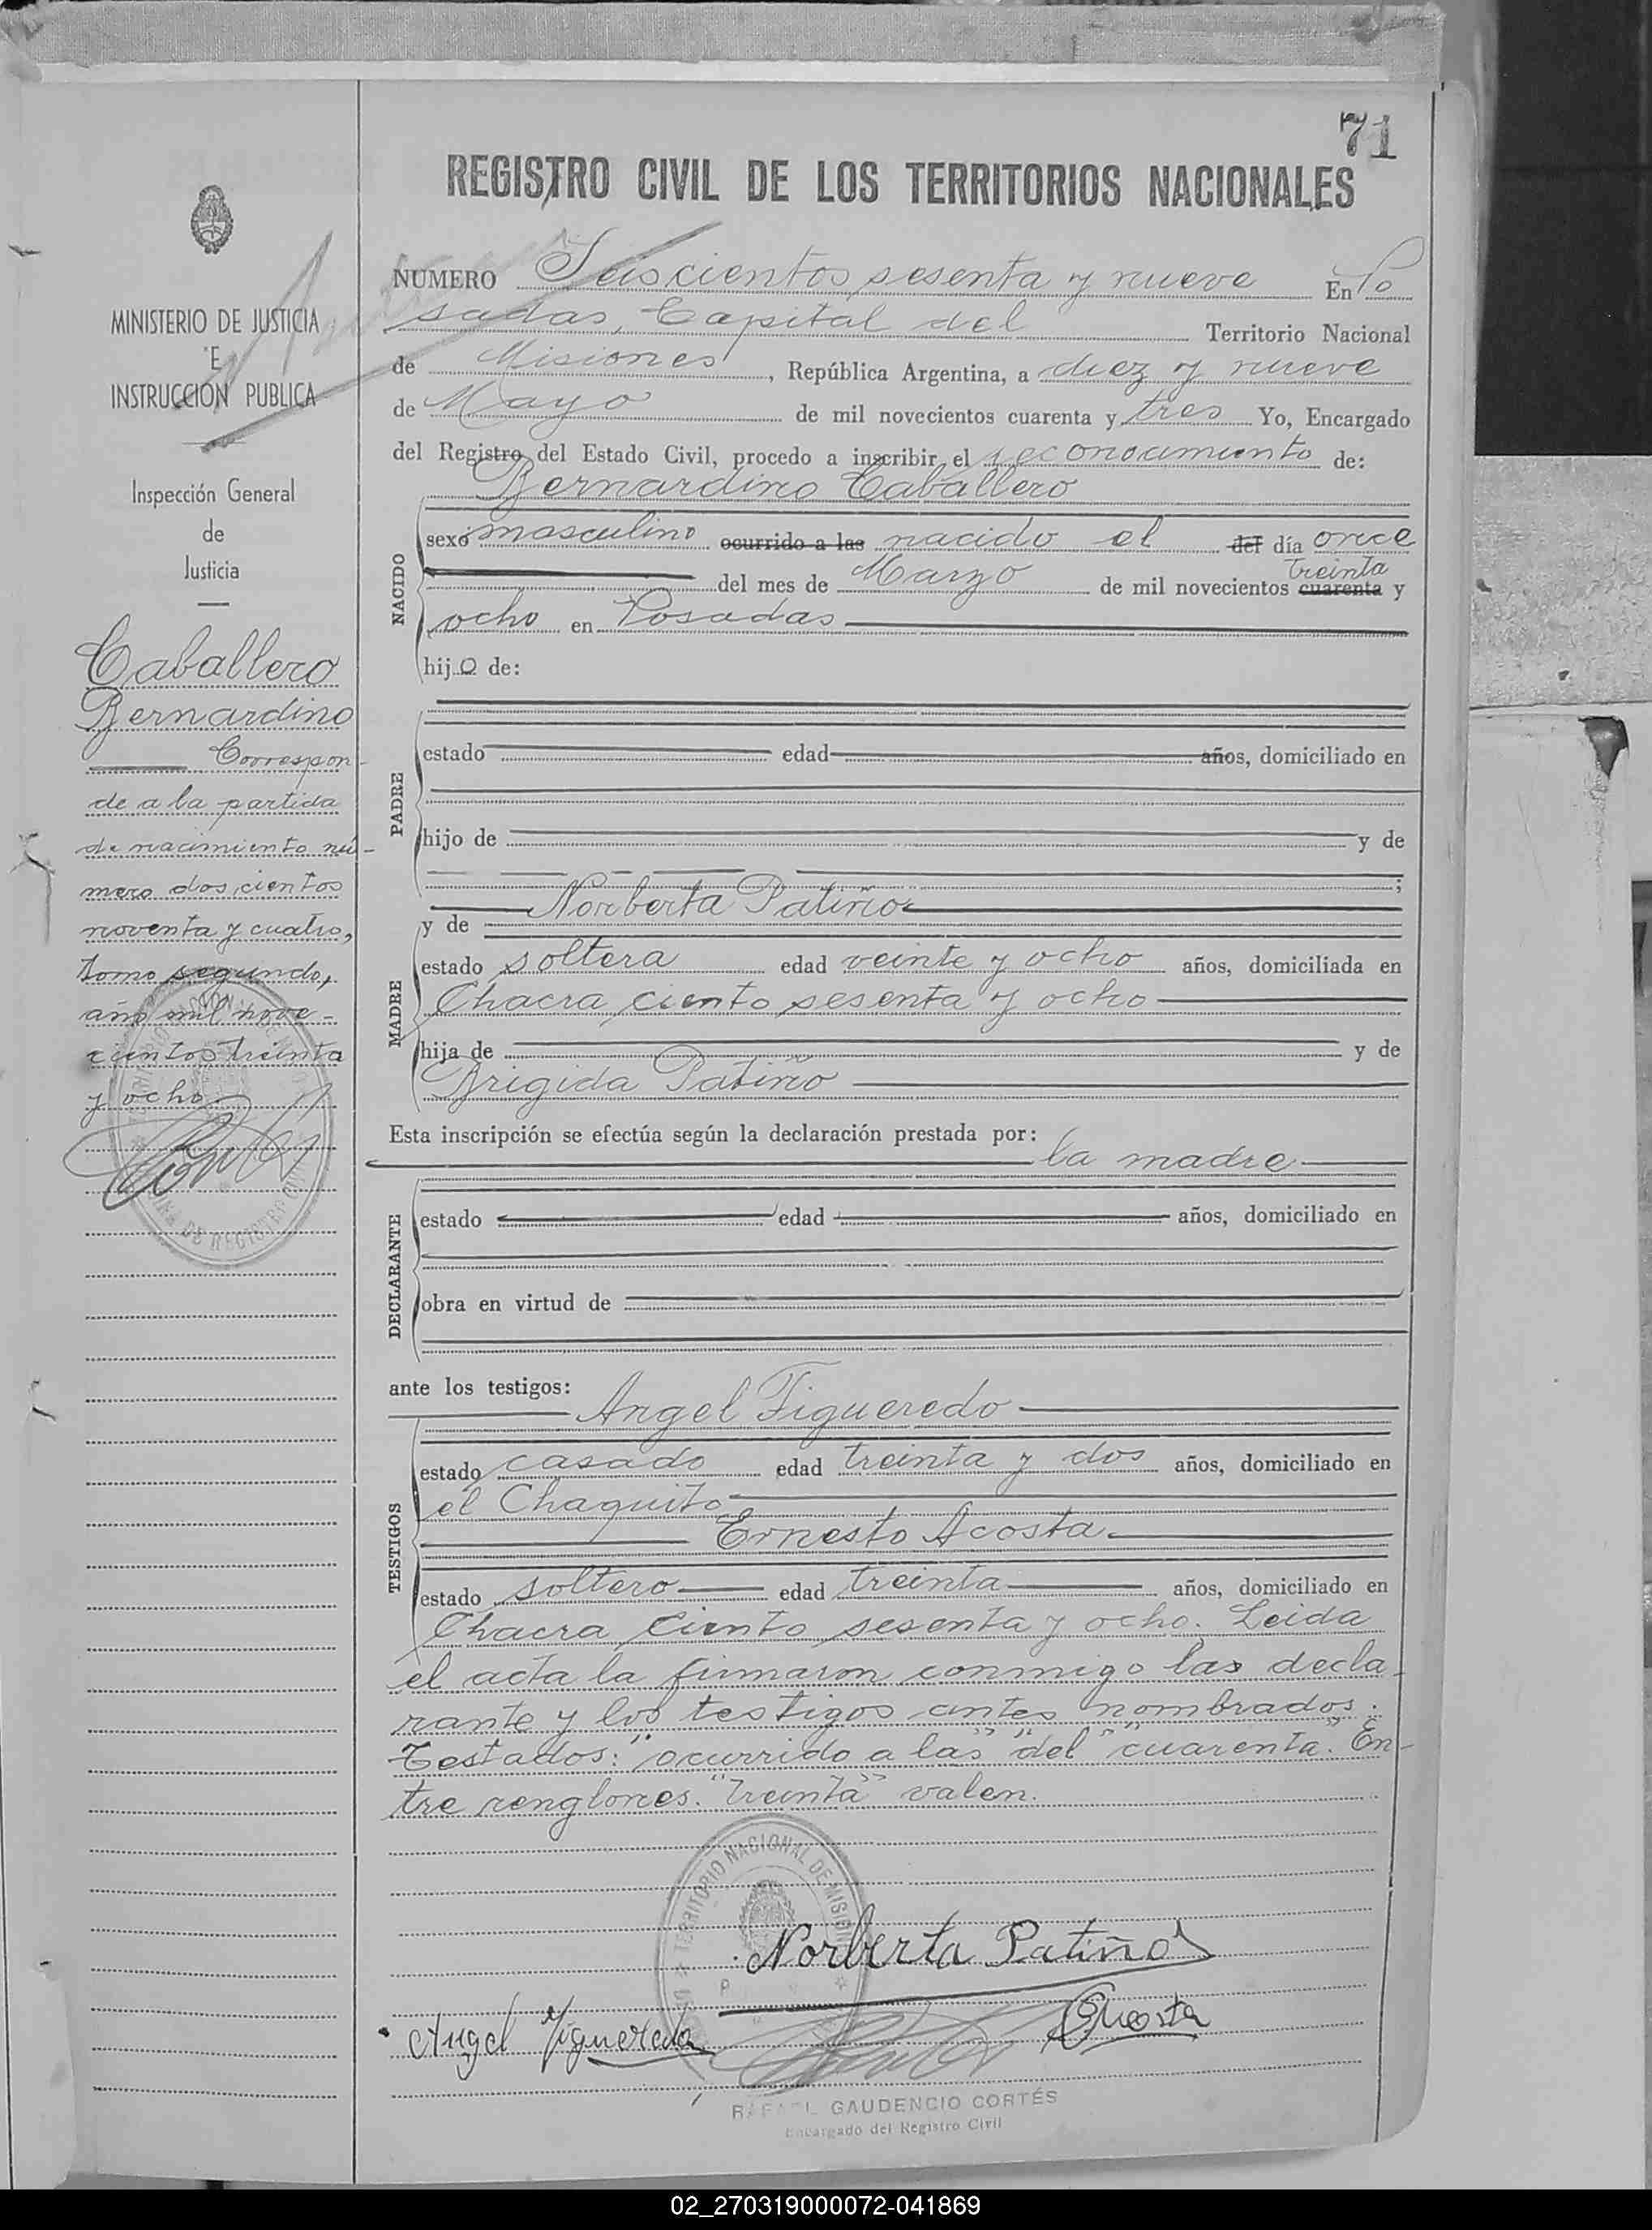 71
REGISTRO CIVIL DE LOS TERRITORIOS NACIONALES
MINISTERIO DE JUSTICIA
E
INSTRUCCIÓN PUBLICA
Inspección General
de
Justicia
Caballero
Bernardino
Correspon-
de a la partida
de nacimiento nú-
mero doscientos
noventa y cuatro,
tomo segundo,
año mil nove-
cientos treinta
y ocho
NUMERO Seiscientos sesenta y nueve En Po
sadas, Capital del Territorio Nacional
de Misiones, República Argentina, a diez y nueve
de Mayo de mil novecientos cuarenta y tres Yo, Encargado
del Registro del Estado Civil, procedo a inscribir el reconocimiento de:
Bernardino Caballero
NACIDO
sexo masculino ocurrido a las nacido el del día once
treinta
del mes de Marzo de mil novecientos cuarenta y
ocho en Posadas
hijo de:
PADRE
estado edad años, domiciliado en
hijo de y de
;
Norberta Patiño
y de
MADRE
estado soltera edad veinte y ocho años, domiciliada en
Chacra ciento sesenta y ocho
hija de y de
Brigida Patiño
Esta inscripción se efectúa según la declaración prestada por:
la madre
DECLARANTE
estado edad años, domiciliado en
obra en virtud de
ante los testigos:
Angel Figueredo
TESTIGOS
estado casado edad treinta y dos años, domiciliado en
el Chaquito
Ernesto Acosta
estado soltero edad treinta años, domiciliado en
Chacra ciento sesenta y ocho. Leida
el acta la firmaron conmigo las decla-
rante y los testigos antes nombrados.
Testados: "ocurrido a las" "del" "cuarenta". En-
tre renglones. "treinta" valen.
TERRITORIO NACIONAL DE MISIONES
Norberta Patiño
Angel Figueredo
EAcosta
RAFAEL GAUDENCIO CORTÉS
Encargado del Registro Civil
02_270319000072-041869